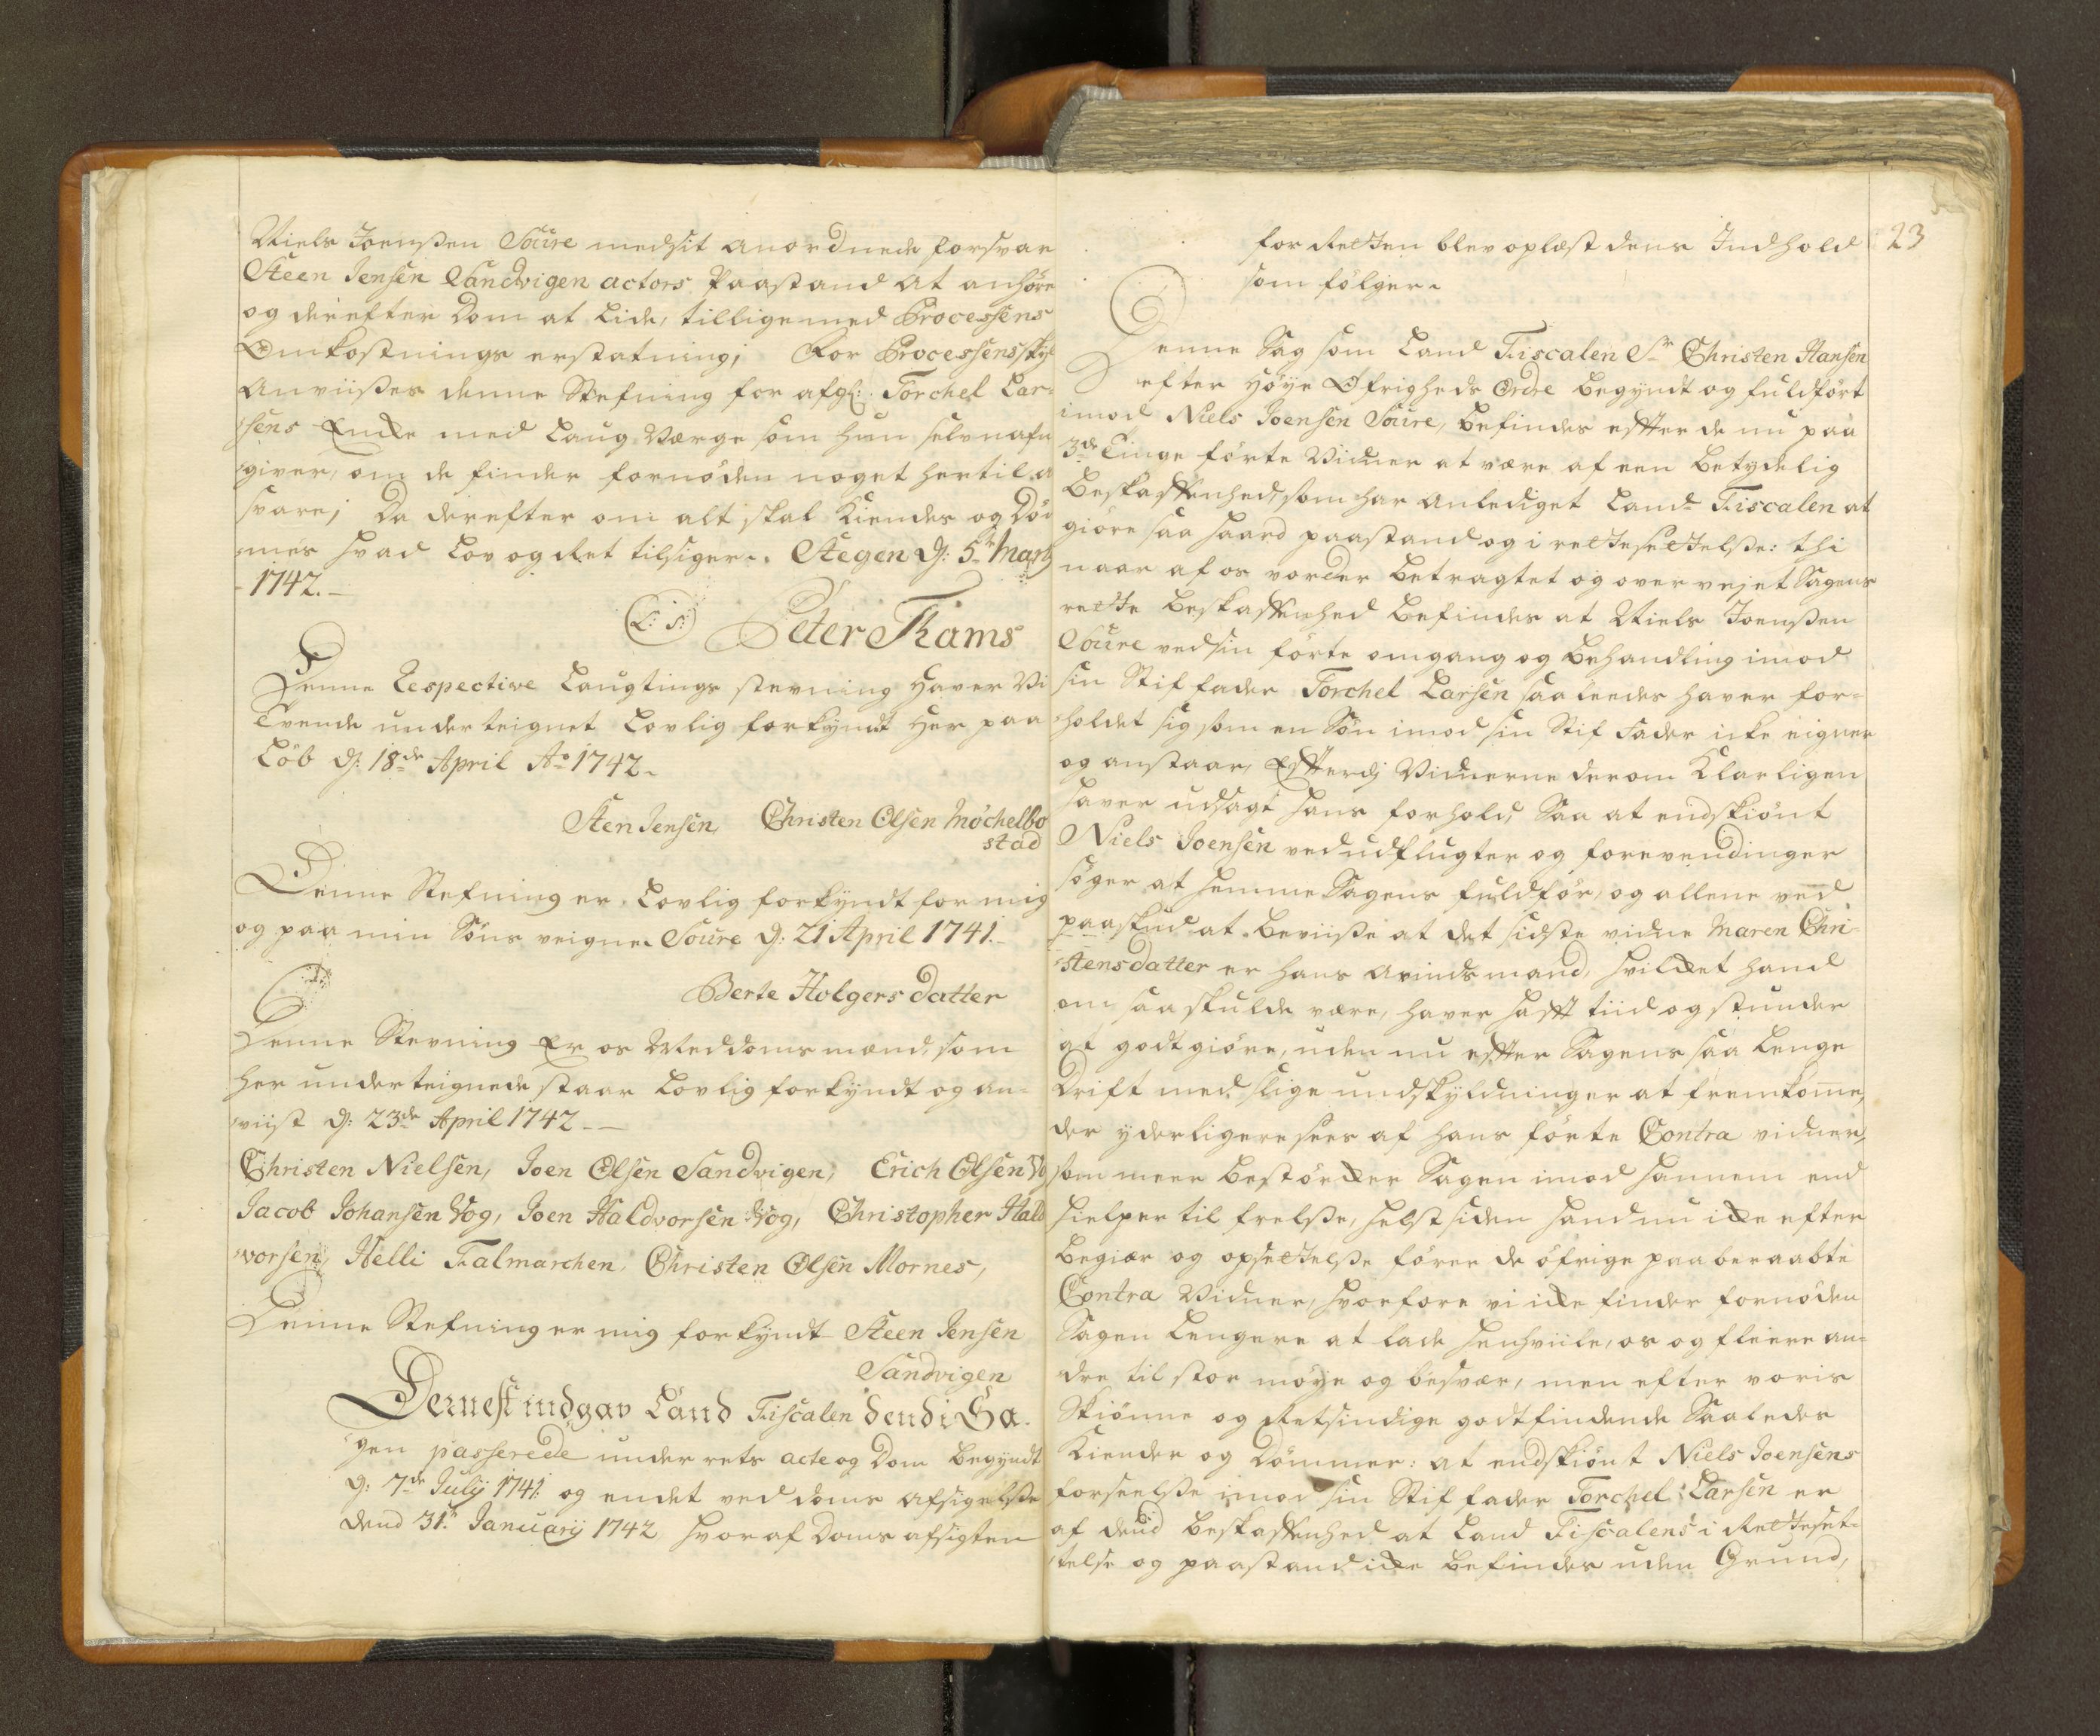 Niels Joensen Soure medsit anordnede forsvar
Steen Jensen Sandvigen actors Paastand at anhöre
og derefter Dom at Lide, tilligemed Processens
Omkostnings erstatning; For Processens skyl
Anviises denne Stefning for afgl: Torchel Lar-
sens Encke med Laug Værge som hun selv nafn
giver, om de finder fornöden noget hertil a
svare; Da derefter om alt skal Kiendes og Döm
mes hvad Lov og Ret tilsiger. Stegen d: 5te Marty
1742.
L: S: Peter Rams
Denne Respective Laugtings stevning haver Vi
tvende underteignet Lovlig forkyndt her paa
Löb d: 18de April Ao 1742.
Sten Jensen, Christen Olsen Möchelbo
stad
Denne Stefning er Lovlig forkyndt for mig
og paa min Söns veigne. Soure d: 21 April 1741.
Berte Holgers datter
Denne Stevning Er os Meddoms mænd, som
her underteignede staar Lovlig forkyndt og an-
viist d: 23de April 1742
Christen Nielsen, Joen Olsen Sandvigen, Erich Olsen Vo
Jacob Johansen Vog, Joen Haldvorsen Vog, Christopher Hald
vorsen, Helli Falmarchen, Christen Olsen Mornes,
Denne Stefning er mig forkyndt Steen Jensen
Sandvigen
Dernest indgav Land Fiscalen dend i Sa-
gen passerede under rets acte og Dom begyndt
d: 7de July 1741 og endet ved doms Afsigelse
dend 31te January 1742 hvoraf Doms afsigten
23
for Retten blev oplæst dens Indhold
som fölger.
Denne Sag som Land Fiscalen Sr Christen Hansen
efter höye Öfrigheds Ordre begyndt og fuldfört
imod Niels Joensen Soure, befindes effter de nu paa
3de Tinge förte Vidner at være af een betydelig
beskaffenhed, som har anlediget Land Fiscalen at
giöre saa haard paastand og i rettesettelse: thi
naar af os vorder betragtet og overvejet Sagens
rette beskaffenhed befindes at Niels Joensen
Soure ved sin förte omgang og behandling imod
sin Stif fader Torchel Larsen saaleedes haver for-
holdet sig som en Sön imod sin Stif Fader icke eigner
og anstaar, Effterdj Vidnerne derom Klarligen
haver udsagt hans forhold, Saa at endskiönt
Niels Joensen ved udflugter og forevendinger
söger at hemme Sagens fuldför, og allene ved
paaskud at beviise at det sidste vidne Maren Chri-
stensdatter er hans avindsmand, hvilcket hand
om saa skulde være, haver hafft tiid og stunder
at godtgiöre, uden nu effter Sagens saa lenge
Drift med slige undskyldninger at fremkome,
der yderligere sees af hans förte Contra vidner,
som meer bestörcker Sagen imod hannem end
hielper til frelse, helst siden hand nu icke efter
begiær og opsettelse förer de öfrige paaberaabte
Contra Vidner, hvorfore vi icke finder fornöden
Sagen lengere at lade henhviile, os og fleere an-
dre til stor möye og besvær, men efter voris
Skiönne og Retsindige godtfindende Saaledes
Kiender og Dömmer: at endskiönt Niels Joensens
forseelse imod sin Stif fader Torchel Larsen er
af dend beskaffenhed at Land Fiscalens i Retteset-
telse og paastand icke befindes uden Grund,